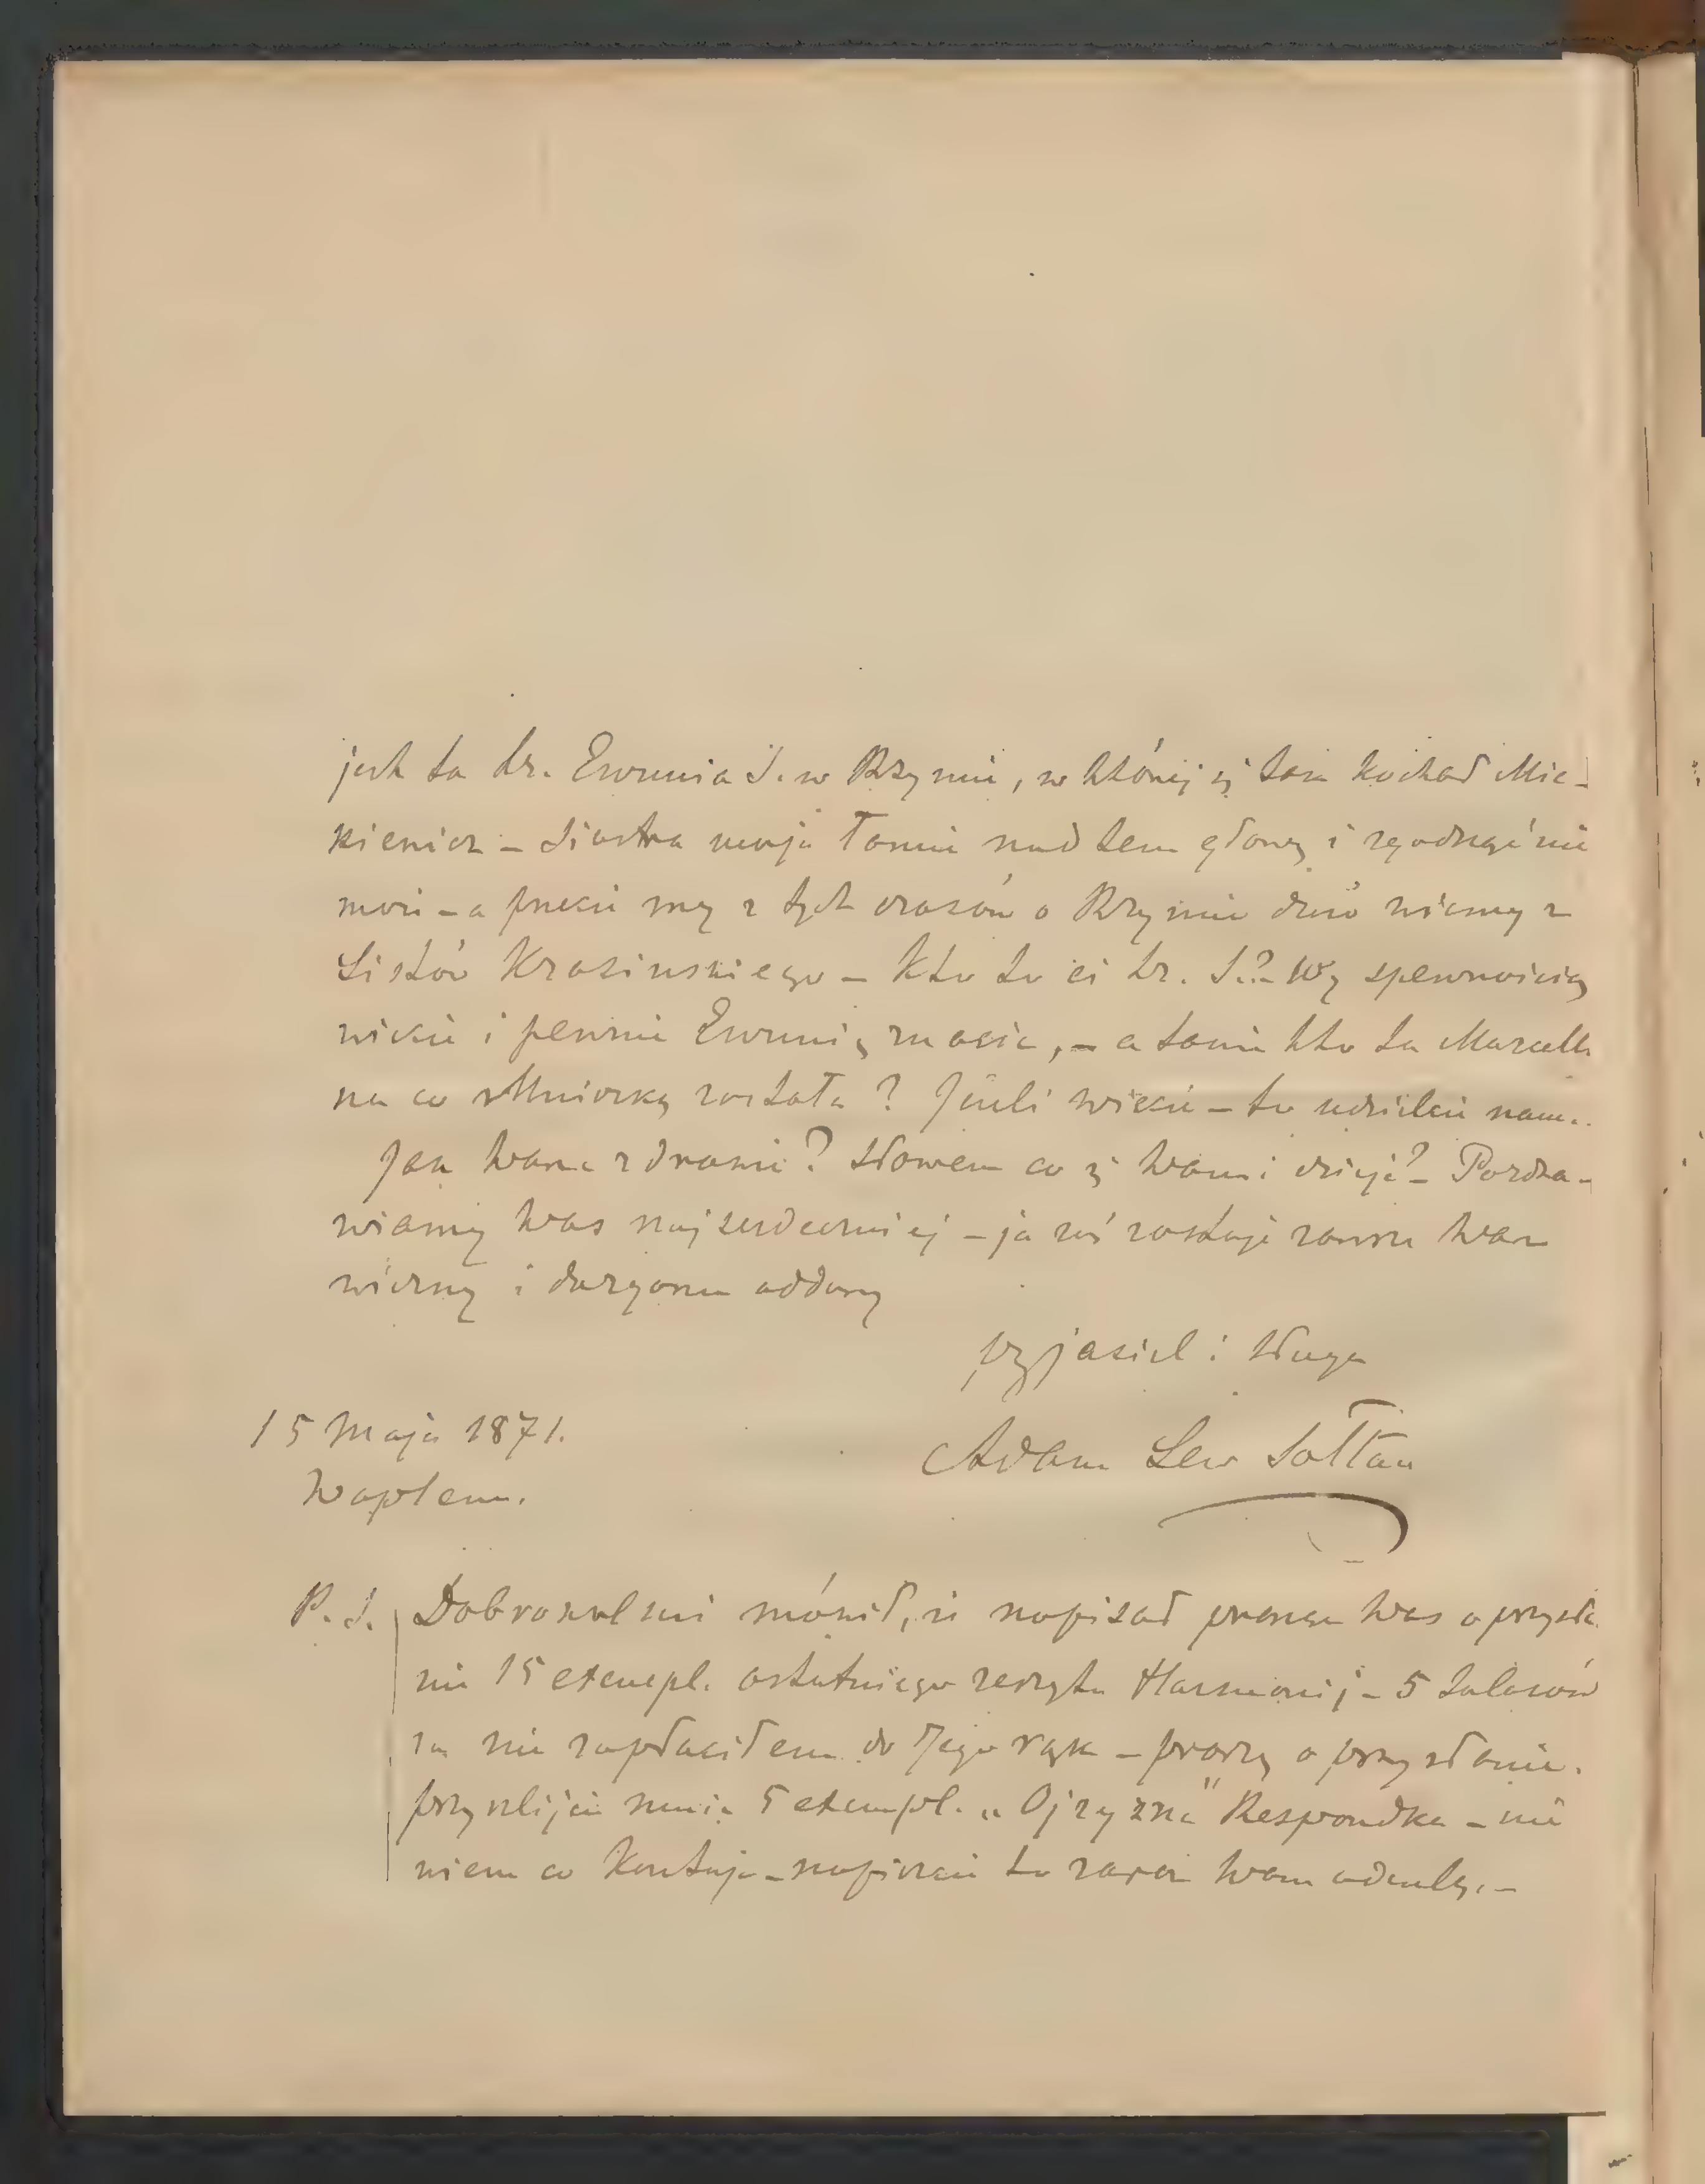 jest ta hr. Ewunia S. w Rzymie, w której się tam kochał Mic-
kiewicz – Siostra moja łamie nad tem głowę i zgadnąć nie
może – a przecie my z tych czasów o Rzymie dużo wiemy z
Listów Krasinskiego – Kto to ci hr. S.? – Wy z pewnością
wiecie i pewnie Ewunię znacie, – a także kto ta Marcelli
na co mniszką została? Jeśli wiecie – to udzielcie nam..
Jak Wasze zdrowie? Słowem co się z Wami dzieje? – Pozdra-
wiamy Was najserdeczniej – ja zaś zostaję zawsze Wam
wierny i dozgonnie oddany
przyjaciel i sługa
Adam Lew Sołtan
15 Maja 1871.
Waplewo.
P.S. Dobrowolski mówił, że napisał prosząc Was o przysła
nie 15 exempl. ostatniego zeszytu Harmonij – 5 talarów
za nie zapłaciłem do Jego rąk – proszę o przysłanie.
przyszlijcie mnie 5 exempl. „Ojczyzna" Respondka – nie
wiem co kosztuje – napiszcie to zaraz Wam odeszlę. –